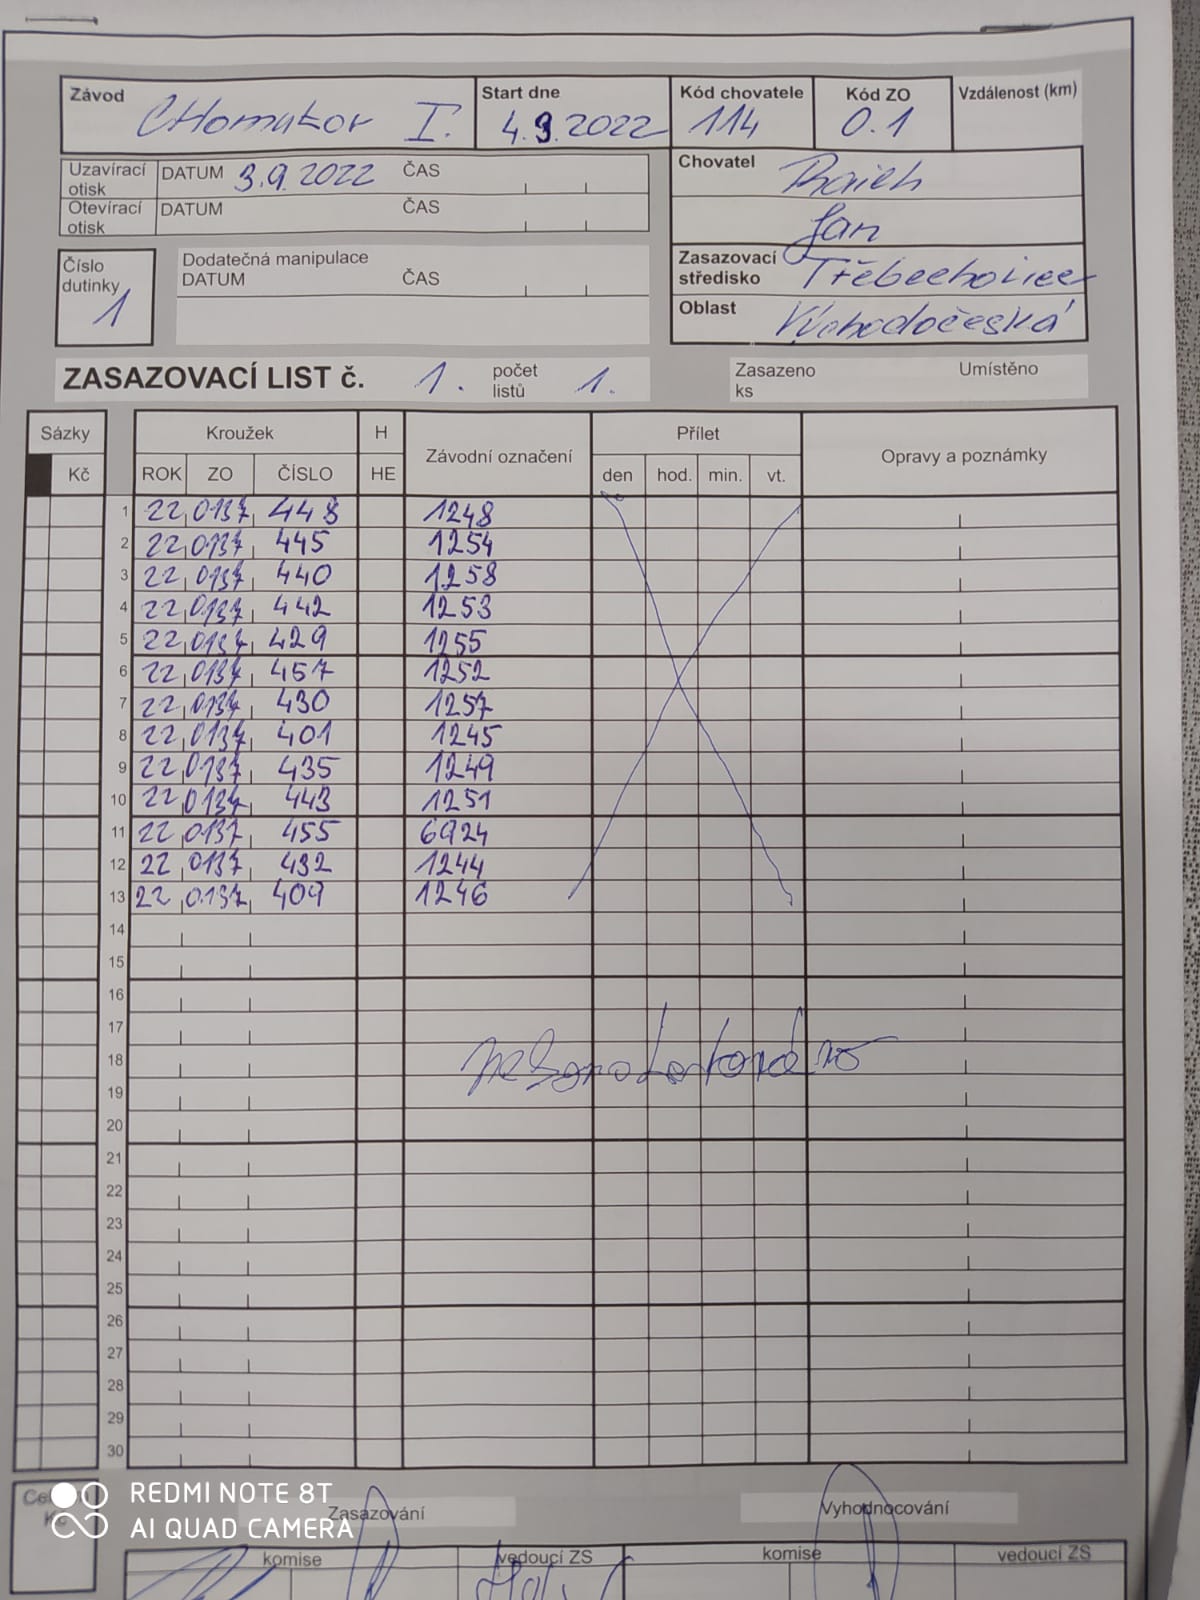 Závod CHomutov I. Start dne 4.9.2022 Kód chovatele 114 Kód ZO 0.1 Vzdálenost (km)
Uzavírací otisk DATUM 3.9.2022 ČAS
Otevírací otisk DATUM ČAS
Chovatel
Jan
Číslo dutinky 1
Dodatečná manipulace
DATUM ČAS
Zasazovací středisko Třebechovice
Oblast Východočeská
ZASAZOVACÍ LIST č. 1. počet listů 1. Zasazeno ks Umístěno
Sázky Kroužek H Závodní označení Přílet Opravy a poznámky
Kč ROK ZO ČÍSLO HE den hod. min. vt.
1 22 0137 448 1248
2 22 0137 445 1254
3 22 0137 440 1258
4 22 0137 442 1253
5 22 0137 429 1255
6 22 0137 457 1252
7 22 0137 430 1257
8 22 0137 401 1245
9 22 0137 435 1249
10 22 0137 443 1251
11 22 0137 455 6924
12 22 0137 432 1244
13 22 0137 409 1246
14
15
16
17
18
19
20
21
22
23
24
25
26
27
28
29
30
REDMI NOTE 8T
AI QUAD CAMERA
Zasazování Vyhodnocování
komise vedoucí ZS komise vedoucí ZS